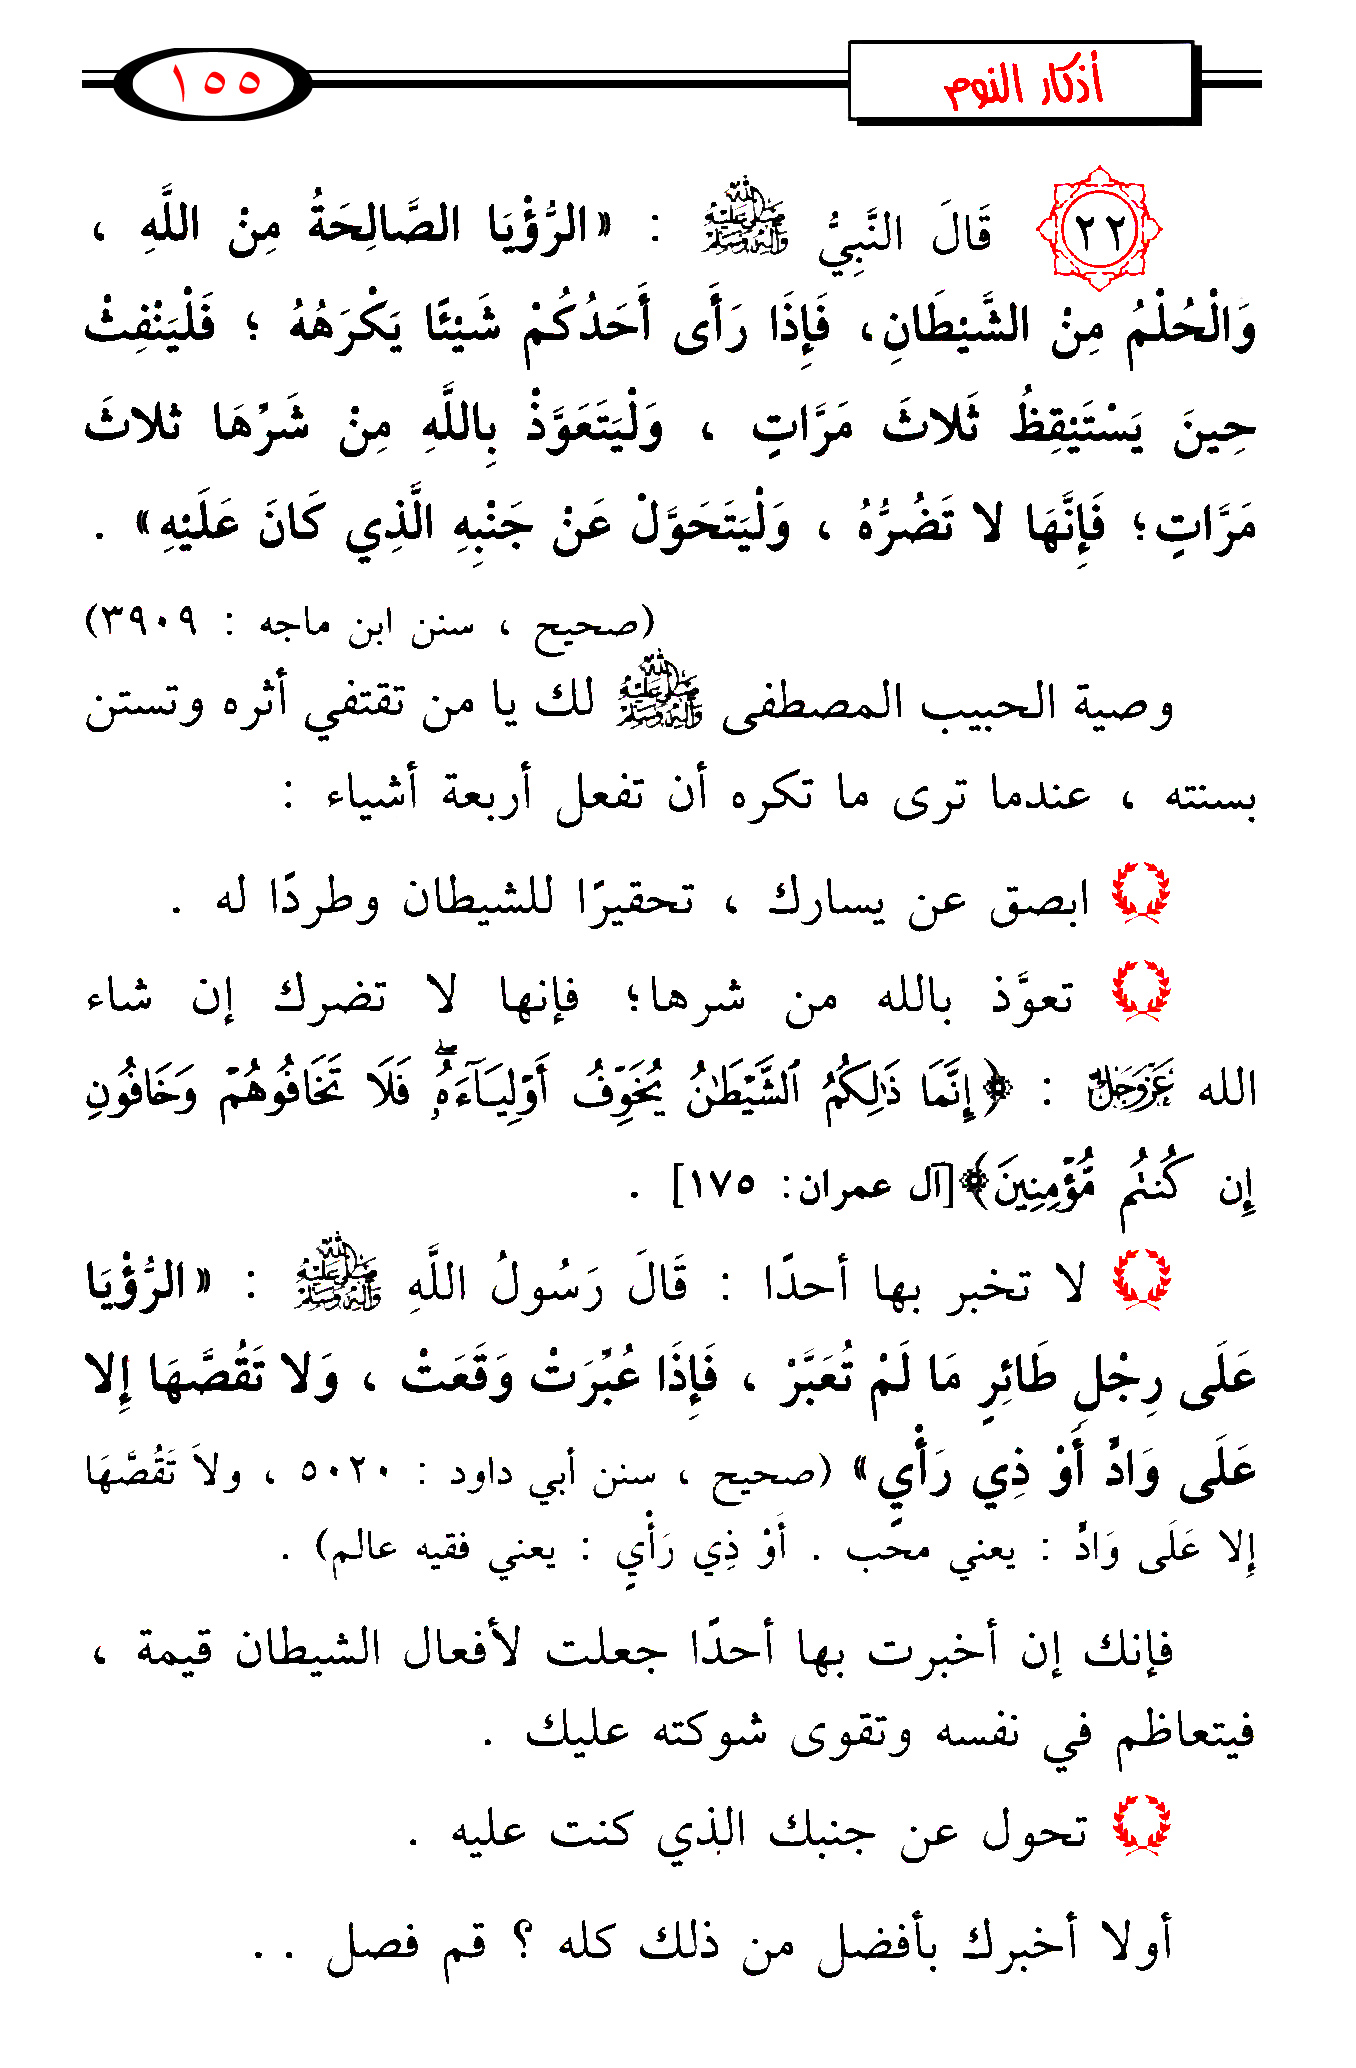 أذكار النوم
١٥٥
٢٢ قَالَ النَّبِيُّ ﷺ : «الرُّؤْيَا الصَّالِحَةُ مِنْ اللَّهِ ،
وَالْحُلْمُ مِنْ الشَّيْطَانِ، فَإِذَا رَأَى أَحَدُكُمْ شَيْئًا يَكْرَهُهُ ؛ فَلْيَنْفِثْ
حِينَ يَسْتَيْقِظُ ثَلاثَ مَرَّاتٍ ، وَلْيَتَعَوَّذْ بِاللَّهِ مِنْ شَرِّهَا ثلاثَ
مَرَّاتٍ؛ فَإِنَّهَا لا تَضُرُّهُ ، وَلْيَتَحَوَّلْ عَنْ جَنْبِهِ الَّذِي كَانَ عَلَيْهِ» .
(صحيح ، سنن ابن ماجه : ٣٩٠٩)
وصية الحبيب المصطفى ﷺ لك يا من تقتفي أثره وتستن
بسنته ، عندما ترى ما تكره أن تفعل أربعة أشياء :
ابصق عن يسارك ، تحقيرًا للشيطان وطردًا له .
تعوَّذ بالله من شرها؛ فإنها لا تضرك إن شاء
الله عَزَّوَجَلَّ : ﴿إِنَّمَا ذَٰلِكُمُ ٱلشَّيْطَٰنُ يُخَوِّفُ أَوْلِيَآءَهُۥ ۖ فَلَا تَخَافُوهُمْ وَخَافُونِ
إِن كُنتُم مُّؤْمِنِينَ﴾[آل عمران: ١٧٥] .
لا تخبر بها أحدًا : قَالَ رَسُولُ اللَّهِ ﷺ : «الرُّؤْيَا
عَلَى رِجْلِ طَائِرٍ مَا لَمْ تُعَبَّرْ ، فَإِذَا عُبِّرَتْ وَقَعَتْ ، وَلا تَقُصَّهَا إِلا
عَلَى وَادٍّ أَوْ ذِي رَأْيٍ» (صحيح ، سنن أبي داود : ٥٠٢٠ ، ولاَ تَقُصَّهَا
إِلا عَلَى وَادٍّ : يعني محب . أَوْ ذِي رَأْيٍ : يعني فقيه عالم) .
فإنك إن أخبرت بها أحدًا جعلت لأفعال الشيطان قيمة ،
فيتعاظم في نفسه وتقوى شوكته عليك .
تحول عن جنبك الذي كنت عليه .
أولا أخبرك بأفضل من ذلك كله ؟ قم فصل . .